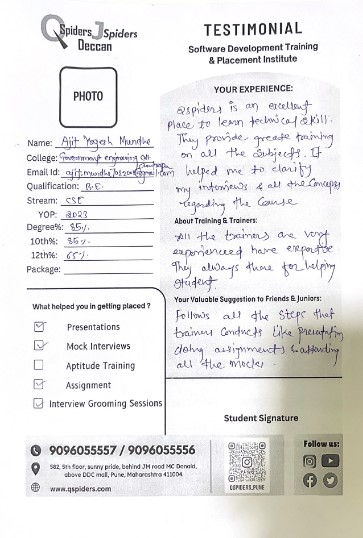 QSpiders JSpiders
Deccan
TESTIMONIAL
Software Development Training
& Placement Institute
PHOTO
Name: Ajit Yogesh Mundhe
College: Government engineering
Email Id:
Qualification: B.E.
Stream: CSE
YOP: 2023
Degree%: 85%
10th%: 85%
12th%: 65%
Package:
YOUR EXPERIENCE:
Qspiders is an excellent
place to learn technical skill.
They provide greate training
on all the subjects. It
helped me to clarify
my interviews & all the concepts
regarding the course
About Training & Trainers:
All the trainers are very
experienced have expertise
They always there for helping
student.
Your Valuable Suggestion to Friends & Juniors:
Follows all the steps that
trainer conducts like presentation
doing assignments & attending
all the mocks.
What helped you in getting placed ?
Presentations
Mock Interviews
Aptitude Training
Assignment
Interview Grooming Sessions
Student Signature
9096055557 / 9096055556
582, 5th floor, sunny pride, behind JM road MC Donald,
above DDC mall, Pune, Maharashtra 411004
www.qspiders.com
QSPIDERS.PUNE
Follow us: